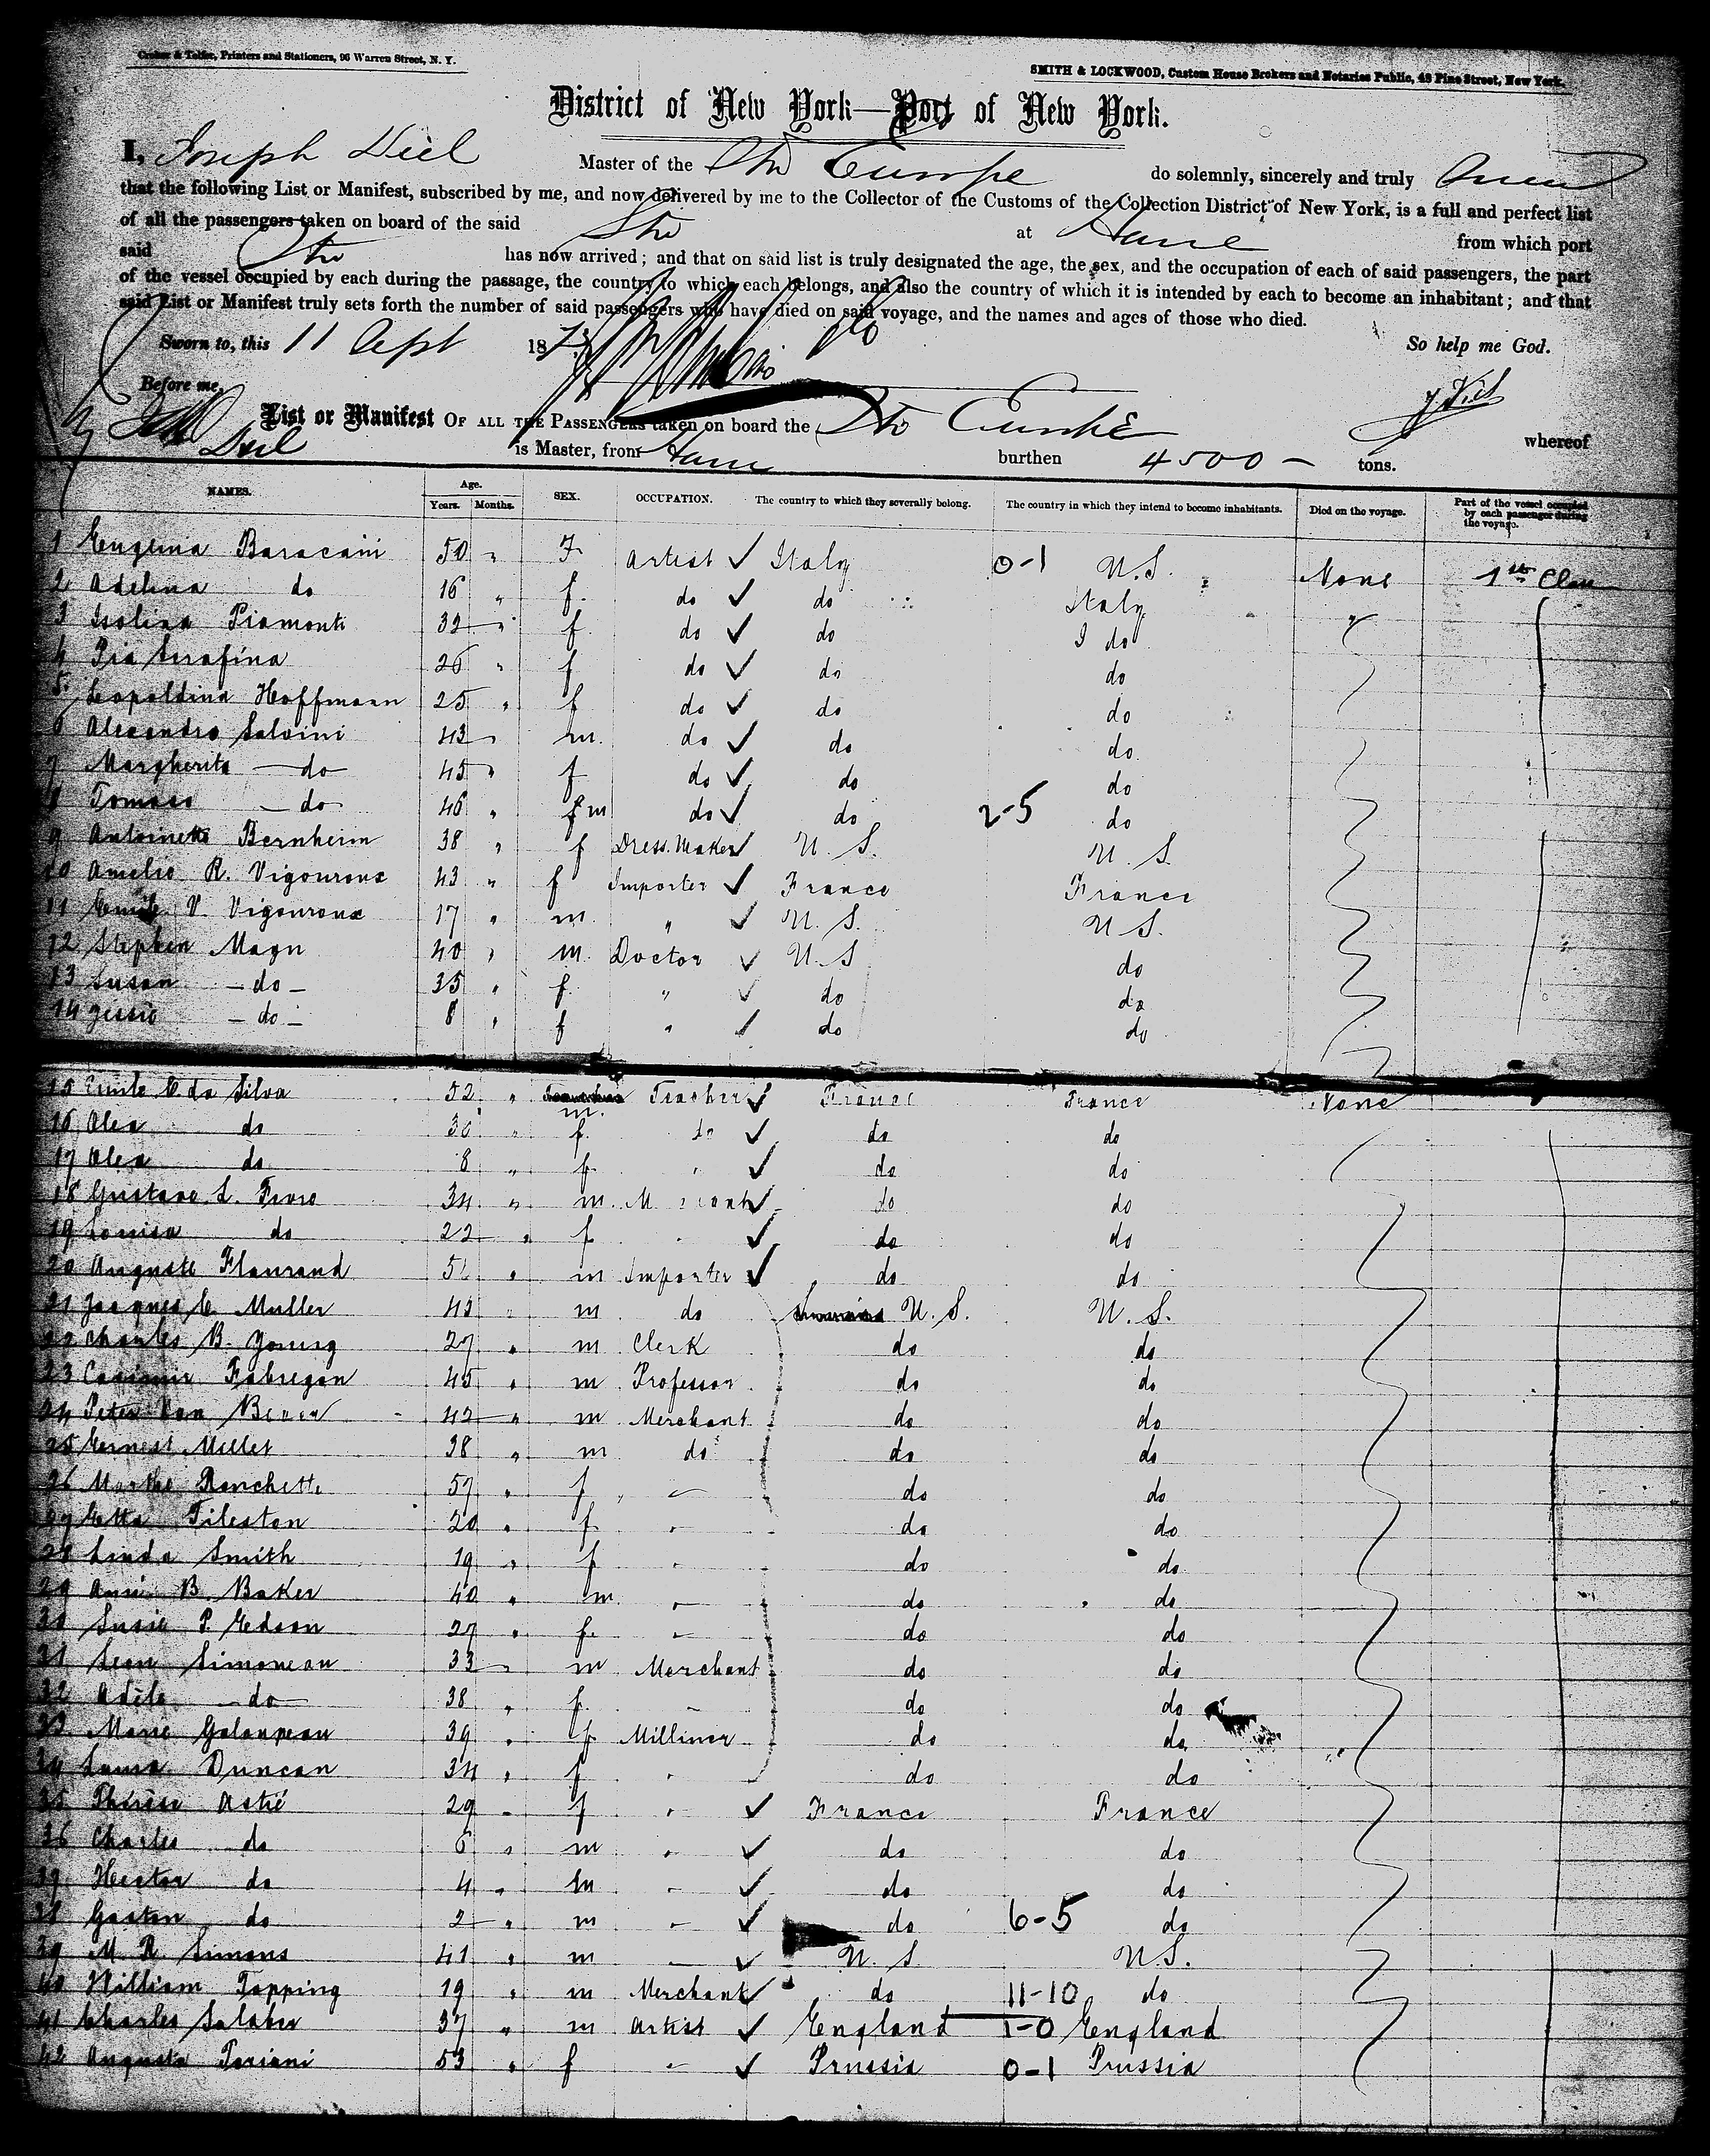 Printers and Stationers, 96 Warren Street, N. Y.
SMITH & LOCKWOOD, Custom House Brokers and Notaries Public, 48 Pine Street, New York.
District of New York—Port of New York.
I, Joseph Diel Master of the Str Europe do solemnly, sincerely and truly
that the following List or Manifest, subscribed by me, and now delivered by me to the Collector of the Customs of the Collection District of New York, is a full and perfect list
of all the passengers taken on board of the said Str at Havre from which port
said Str has now arrived; and that on said list is truly designated the age, the sex, and the occupation of each of said passengers, the part
of the vessel occupied by each during the passage, the country to which each belongs, and also the country of which it is intended by each to become an inhabitant; and that
said List or Manifest truly sets forth the number of said passengers who have died on said voyage, and the names and ages of those who died.
Sworn to, this 11 Sept 1873 So help me God.
Before me,
List or Manifest OF ALL THE PASSENGERS taken on board the Str Europe whereof
Diel is Master, from Havre burthen 4500 – tons.
NAMES. Age. Years. Months. SEX. OCCUPATION. The country to which they severally belong. The country in which they intend to become inhabitants. Died on the voyage. Part of the vessel occupied by each passenger during the voyage.
1 Eugenia Baracani 50 " F artist ✓ Italy 0-1 U.S. None 1st Class
2 Adelina do 16 " f. do ✓ do Italy "
3 Isolina Piamonti 32 " f do ✓ do I do
4 Pia Serafina 26 " f do ✓ do do
5 Leopoldina Hoffmann 25 " f do ✓ do do
6 Alexandro Salvini 43 " m. do ✓ do do
7 Margherita — do — 45 " f do ✓ do do
8 Tomaso — do 46 " m do ✓ do 2-5 do
9 Antoinette Bernheim 38 " f Dress Maker ✓ U. S. U. S.
10 Amelie R. Vigouroux 43 " f Importer ✓ France France
11 Emile V. Vigouroux 17 " m. " ✓ U. S. U S.
12 Stephen Magn 40 " m. Doctor ✓ U. S do
13 Susan – do – 35 " f. " ✓ do do
14 Jessie – do – 8 " f " ✓ do do
15 Emile E da Silva 52 " m. Teacher ✓ France France None
16 Alea do " f. do ✓ do do
17 Alea do 8 " f. " ✓ do do
18 Gustave L. Favre 34 " m. Merchant ✓ do do
19 Louisa do 22 " f " ✓ do do
20 Auguste Flaurand " m Importer ✓ do do
21 Jacques C. Muller 42 " m do U. S. U. S.
22 Charles B. Young 27 " m Clerk do do
23 Casimir Fabregon 45 " m Professor do do
24 Peter Van 42 " m Merchant do do
25 Ernest Millet 38 " m do do do
26 Marthe Ranchette 57 " f " do do
27 Etta Tileston 20 " f " do do
28 Linda Smith 19 " f " do do
29 B. Baker 40 " m. " do do
30 Susie P. Edson 27 " f. " do do
31 Leon Simoneau 33 " m Merchant do do
32 Adèle — do — 38 " f. " do do
33 Marie Galoupeau 39 " f Milliner do do
34 Laura Duncan 34 " f " do do
35 Thérèse Astié 29 " f " ✓ France France
36 Charles do 6 " m " ✓ do do
37 Hector do 4 " m " ✓ do do
38 Gaston do 2 " m " ✓ do 6-5 do
39 M. R. Simons 41 " m — ✓ U. S U.S.
40 William Topping 19 " m Merchant ✓ do 11-10 do
41 Charles 37 " m Artist ✓ England 1-0 England
42 Augusta Toriani 53 " f " ✓ Prussia 0-1 Prussia